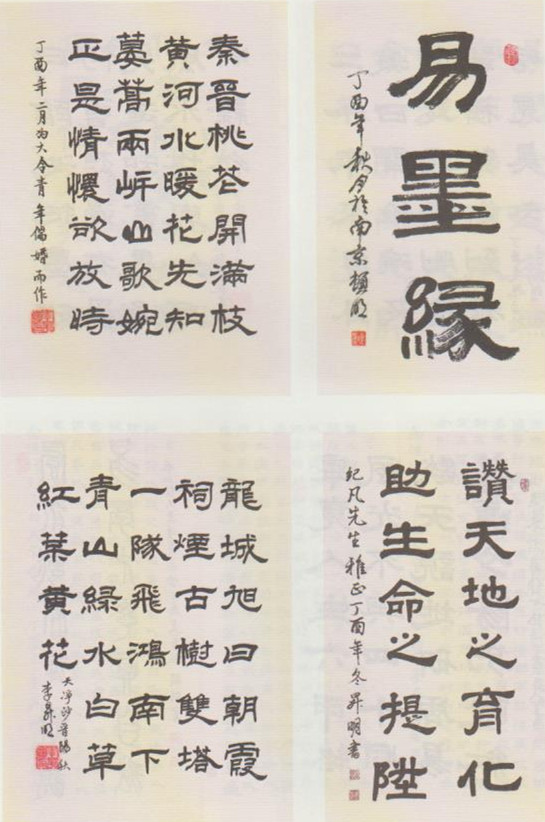 易墨緣
丁酉年秋月於南京
秦晉桃花開滿枝
黃河水暖花先知
蔞蒿兩岍山歌婉
正是情懷欲放時
丁酉年二月为大令青年婚而作
讚天地之育化
助生命之提陞
纪凡先生雅正丁酉年冬昇明書
龍城旭日朝霞
祠煙古樹雙塔
一隊飛鴻南下
青山綠水白草
紅葉黄花
天淨沙晉陽秋
李昇明